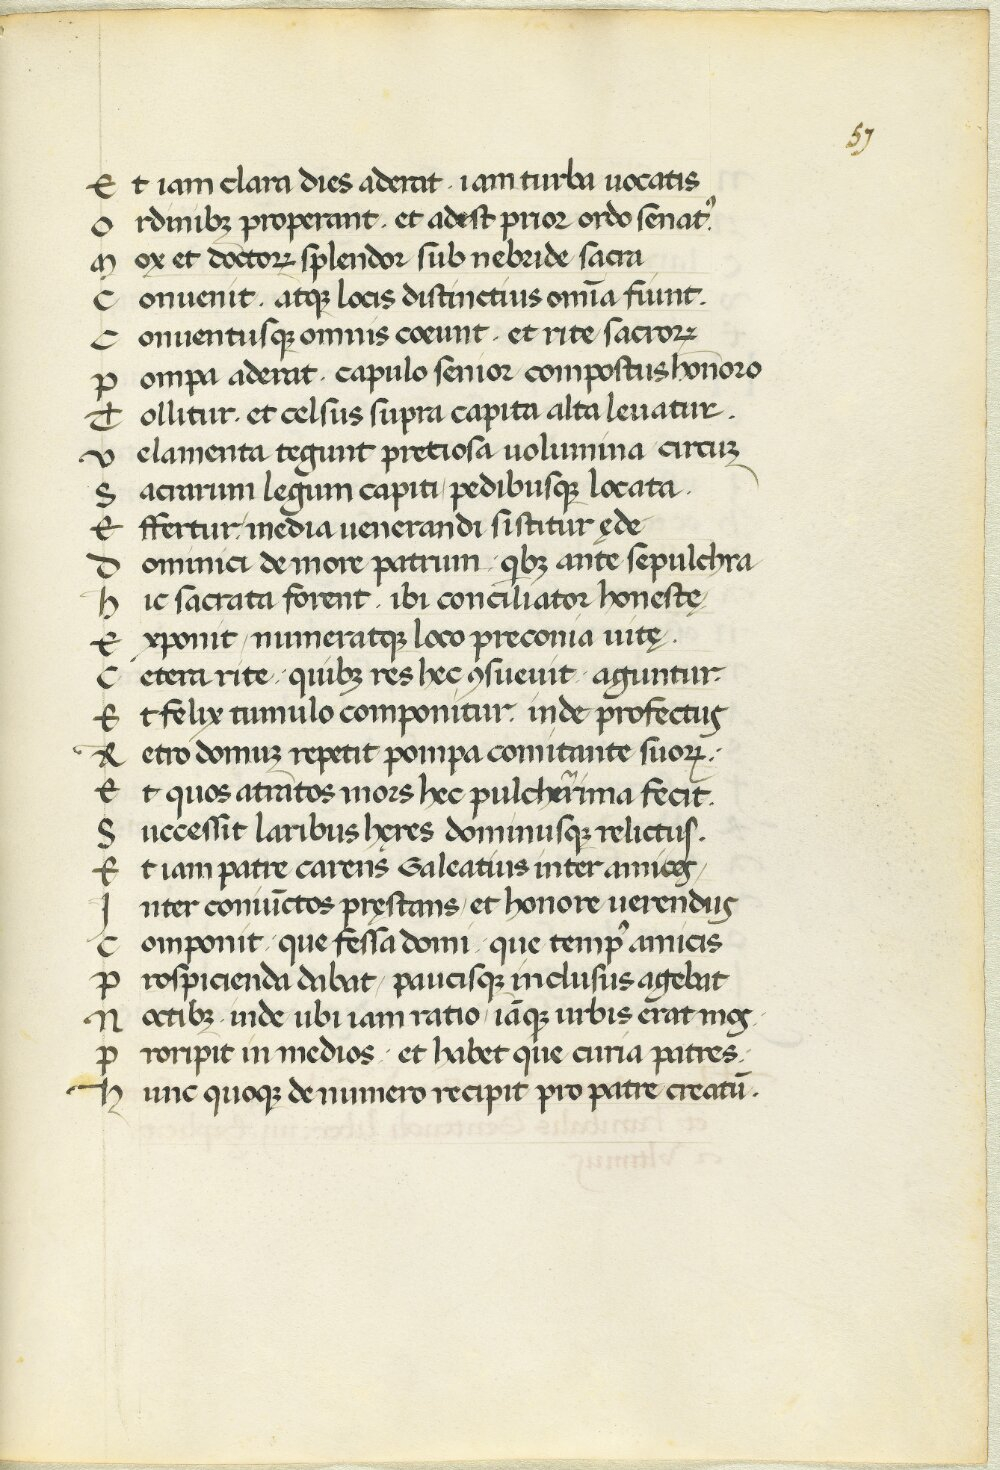 57
Et iam clara dies aderat · iam turba uocatis
Ordinibꝫ properant · et adest prior ordo senatꝰ.
Mox et doctoꝝ splendor sub nebride sacra
Conuenit · atqꝫ locis distinctius om̄ia fiunt.
Conuentusqꝫ omnis coeunt · et rite sacroꝝ
Pompa aderat · capulo senior compostus hōnoro
Tollitur · et celsus supra capita alta leuatur.
Velamenta tegunt pretiosa uolumina circuꝫ
Sacrarum legum capiti / pedibusqꝫ locata.
Effertur / media uenerandi sistitur ęde
Dominici de more patrum · qbꝫ ante sepulchra
Hic sacrata forent · ibi conciliator honestę
Exponit / numeratqꝫ loco preconia uitę.
Cetera rite · quibꝫ res hec ꝯsueuit · aguntur.
Et felix tumulo componitur. inde profectuꝰ
Retro domuꝫ repetit pompa comitante suoꝝ.
Et quos atratos mors hec pulcherrima fecit.
Successit laribus hęres dominusqꝫ relictus.
Et iam patre carens Galeatius inter amicoꝰ/
Inter coniūctos pręstans / et honore uerenduꝰ
Componit · que fessa domi · que tempꝰ amicis
Prospicienda dabat / paucisqꝫ inclusus agebat
Noctibꝫ · inde ubi iam ratio / iāqꝫ urbis erat moꝰ
Proripit in medios · et habet que curia patres ·
Hunc quoqꝫ de numero recipit pro patre creatū.